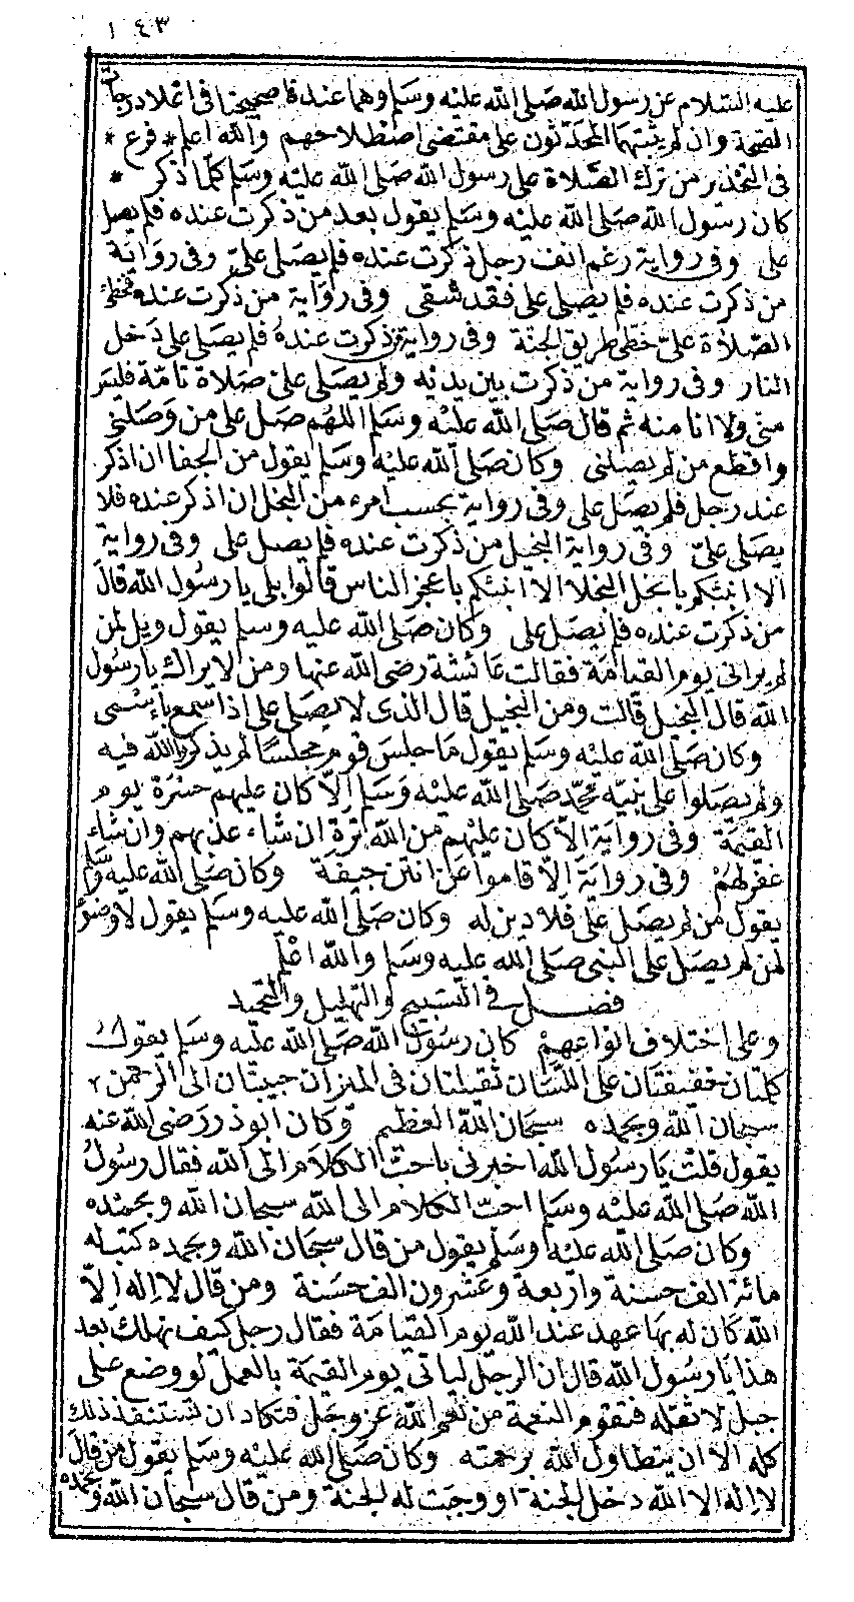 ١٤٣
عليه السلام عن رسول الله صلى الله عليه وسلم وهما عندنا صحيحان في اعلا درجات
الصحة وان لم يثبتهما المحدثون على مقتضى اصطلاحهم والله اعلم * فرع *
في التحذير من ترك الصلاة على رسول الله صلى الله عليه وسلم كلما ذكر *
كان رسول الله صلى الله عليه وسلم يقول بعد من ذكرت عنده فلم يصل
على وفي رواية رغم انف رجل ذكرت عنده فلم يصلى علىّ وفي رواية
من ذكرت عنده فلم يصلى على فقد شقى وفي رواية من ذكرت عنده فخطئ
الصلاة علىّ خطئ طريق الجنة وفي رواية من ذكرت عنده فلم يصلى على دخل
النار وفي رواية من ذكرت بين يديه ولم يصلى على صلاة تامة فليس
منى ولا انا منه ثم قال صلى الله عليه وسلم اللهم صل على من وصلنى
واقطع من لم يصلنى وكان صلى الله عليه وسلم يقول من الجفا ان اذكر
عند رجل فلم يصل على وفي رواية بحسب امرء من البخل ان اذكر عنده فلا
يصلى علىّ وفي رواية البخيل من ذكرت عنده فلم يصل على وفي رواية
الا انبئكم بابخل البخلا الا انبئكم باعجز الناس قالوا بلى يا رسول الله قال
من ذكرت عنده فلم يصل على وكان صلى الله عليه وسلم يقول ويل لمن
لم يرانى يوم القيامة فقالت عائشة رضى الله عنها ومن لا يراك يا رسول
الله قال البخيل قالت ومن البخيل قال الذى لا يصلى على اذا سمع باسمى
وكان صلى الله عليه وسلم يقول ما جلس قوم مجلسا لم يذكروا الله فيه
ولم يصلوا على نبيه محمد صلى الله عليه وسلم الا كان عليهم حسرة يوم
القيمة وفي رواية الا كان عليهم من الله ترة ان شاء عذبهم وان شاء
غفر لهم وفي رواية الا قاموا عن انتن جيفة وكان صلى الله عليه وسلم
يقول من لم يصل على فلا دين له وكان صلى الله عليه وسلم يقول لا وضوء
لمن لم يصل على النبى صلى الله عليه وسلم والله اعلم
فصل في التسبيح والتهليل والتحميد
وعلى اختلاف انواعهم كان رسول الله صلى الله عليه وسلم يقول
كلمتان خفيفتان على اللسان ثقيلتان في الميزان حبيبتان الى الرحمن
سبحان الله وبحمده سبحان الله العظيم وكان ابو ذر رضى الله عنه
يقول قلت يا رسول الله اخبرنى باحب الكلام الى الله فقال رسول
الله صلى الله عليه وسلم احب الكلام الى الله سبحان الله وبحمده
وكان صلى الله عليه وسلم يقول من قال سبحان الله وبحمده كتب له
مائة الف حسنة واربعة وعشرون الف حسنة ومن قال لا اله الا
الله كان له بها عهد عند الله يوم القيامة فقال رجل كيف نهلك بعد
هذا يا رسول الله قال ان الرجل لياتى يوم القيمة بالعمل لو وضع على
جبل لا ثقله فتقوم النعمة من نعم الله عز وجل فتكاد ان تستنفذ ذلك
كله الا ان يتطاول الله برحمته وكان صلى الله عليه وسلم يقول من قال
لا اله الا الله دخل الجنة او وجبت له الجنة ومن قال سبحان الله وبحمده